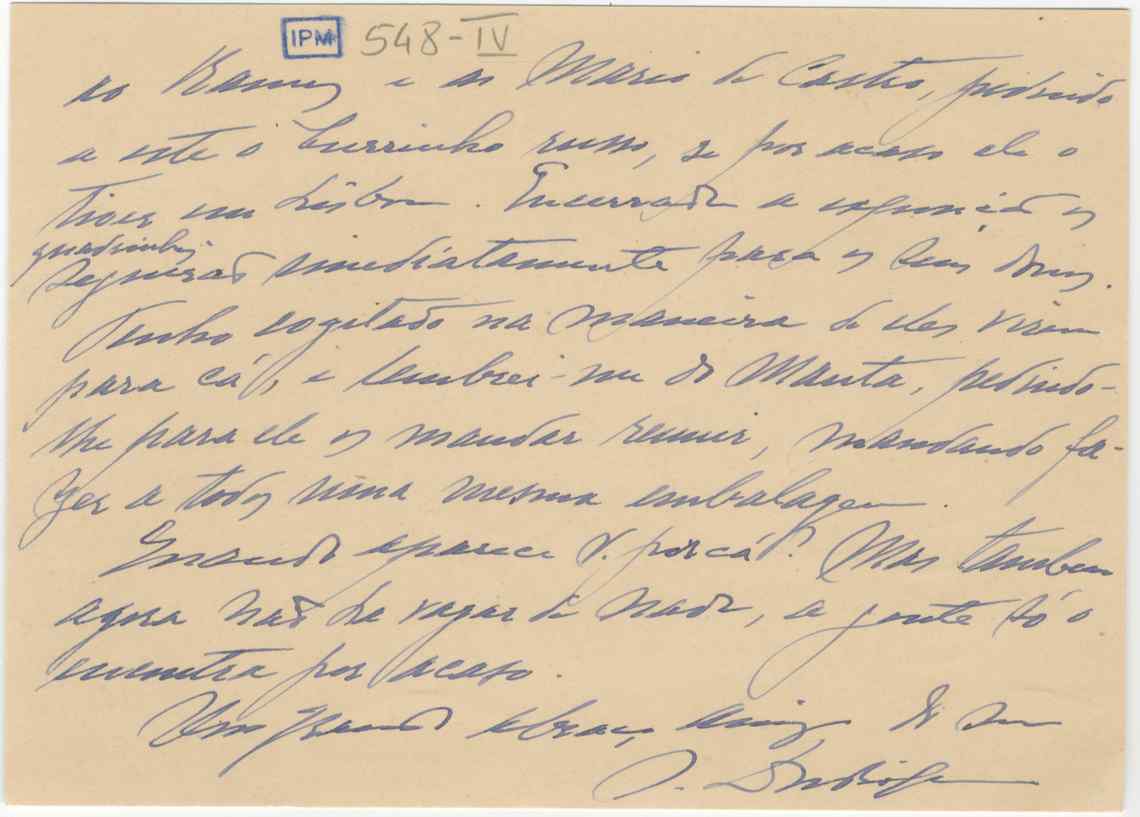 IPM 548-IV
ao Ramos e ao Mario de Castro, pedindo
a este o burrinho russo, se por acaso ele o
tiver em Lisboa. Encerrada a exposição os
quadrinhos
seguirão imediatamente para os seus donos.
Tenho cogitado na maneira de eles virem
para cá, e lembrei-me do Manta, pedindo-
lhe para ele os mandar reunir, mandando fa-
zer a todos uma mesma embalagem.
Quando aparece V. por cá? Mas tambem
agora não da vagar de nada, a gente só o
encontra por acaso.
Um grande abraço, amigo do seu